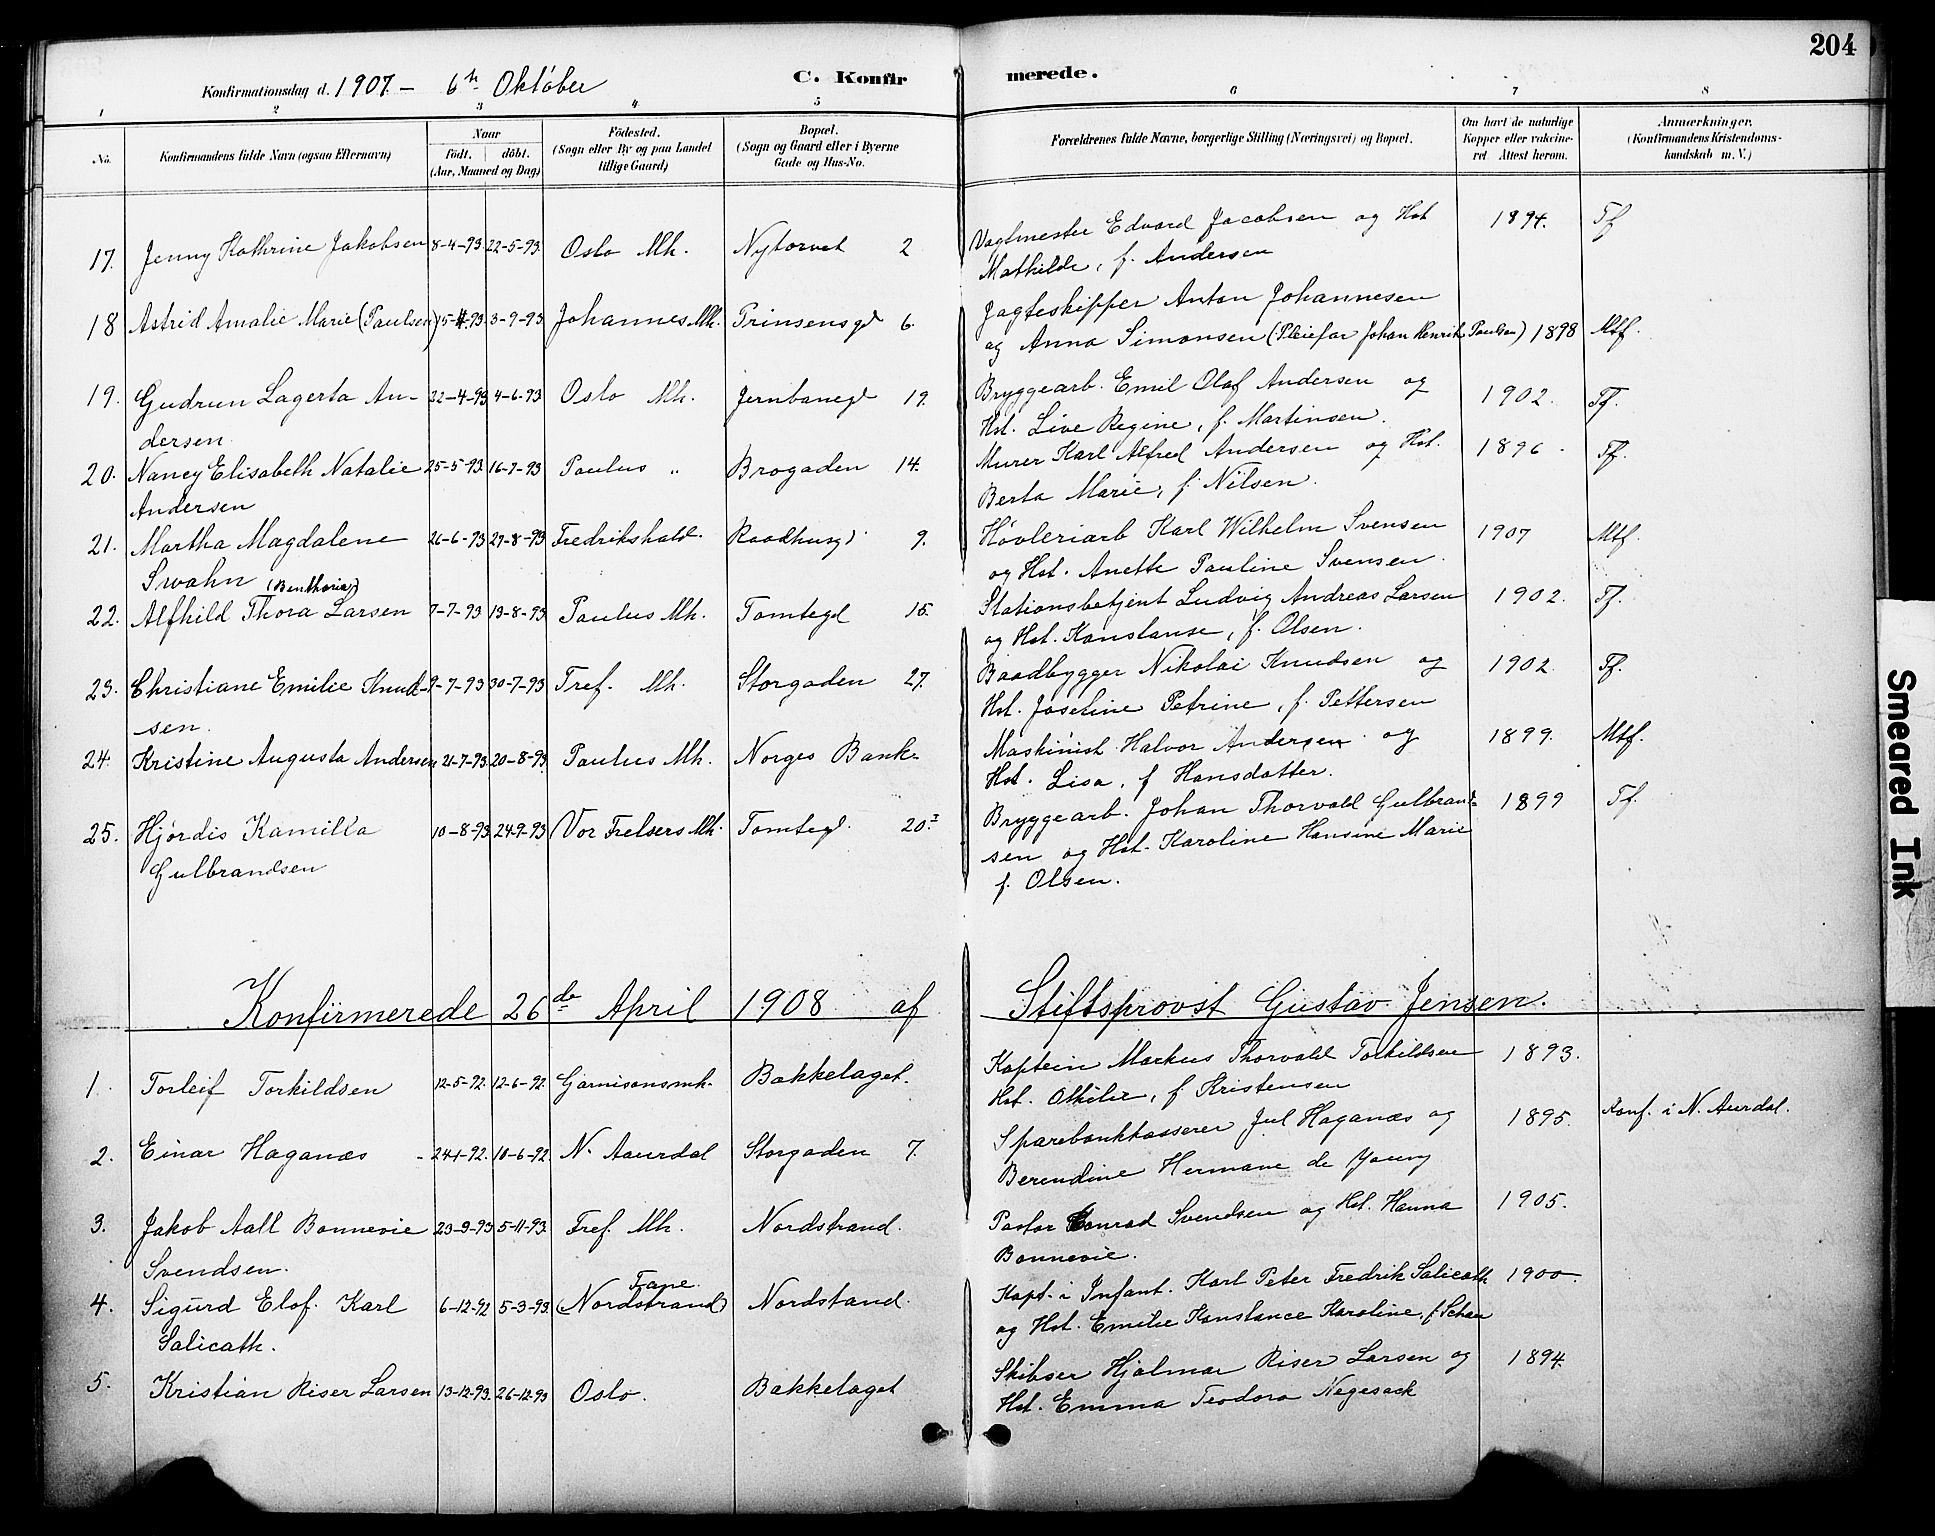 204
Konfirmationsdag d. 1907. – 6te Oktober C. Konfirmerede.
1 2 3 4 5 6 7 8
No. Konfirmandens fulde Navn (ogsaa Efternavn) Naar født. døbt. (Aar, Maaned og Dag) Fødested. (Sogn eller By og paa Landet tillige Gaard) Bopæl. (Sogn og Gaard eller i Byerne Gade og Hus-No. Forældrenes fulde Navne, borgerlige Stilling (Næringsvei) og Bopæl. Om havt de naturlige Kopper eller vakcineret Attest herom. Anmærkninger. (Konfirmandens Kristendomskundskab m. V.)
17. Jenny Kathrine Jakobsen 8-4-93 22-5-93 Oslo Mh. Nytorvet 2 Vagtmester Edvard Jacobsen og Hst 1894. Tf
Mathilde, f. Andersen
18 Astrid Amalie Marie (Paulsen) 15-4-93. 3-9-93 Johannes Mh. Prinsensgd 6. Jagteskipper Anton Johannesen
og Anna Simonsen (Pleiefar Johan Henrik Paulsen) 1898 Mtf.
19. Gudrun Lagerta An- 22-4-93 4-6-93 Oslo Mh. Jernbanegd 19. Bryggearb. Emil Olaf Andersen og 1902. Tf.
dersen. Hst. Live Regine, f. Martinsen.
20. Nancy Elisabeth Natalie 25-5-93 16-7-93 Paulus „ Brogaden 14. Murer Karl Alfred Andersen og Hst. 1896. Tf.
Andersen Berta Marie, f. Nilsen.
21. Martha Magdalene 26-6-93 27-8-93 Fredrikshald. Raadhusgd 9. Høvleriarb Karl Wilhelm Svensen 1907 Mtf.
Swahn og Hst. Anette Pauline Svensen.
22. Alfhild Thora Larsen 7-7-93 13-8-93 Paulus Mh. Tomtegd 15. Stationsbetjent Ludvig Andreas Larsen 1902. Tf.
og Hst. Konstanse, f. Olsen.
23. Christiane Emilie Knud- 9-7-93 30-7-93 Tref. Mh. Storgaden 27. Baadbygger Nikolai Knudsen og 1902. Tf.
sen. Hst. Josefine Petrine, f. Pettersen
24. Kristine Augusta Andersen 21-7-93 20-8-93. Paulus Mh. Norges Bank- Maskinist Halvor Andersen og 1899. Mtf.
Hst. Lisa, f Hansdatter.
25. Hjørdis Kamilla 10-8-93 24-9-93 Vor Frelsers Mh. Tomtegd. 20.I Bryggearb. Johan Thorvald Gulbrand- 1899 Tf.
Gulbrandsen sen og Hst. Karoline Hansine Marie
f. Olsen.
Konfirmerede 26de April 1908 af Stiftsprovst Gustav Jensen.
1. Torleif Torkildsen 12-5-92. 12-6-92. Garnisonsmh. Bakkelaget. Kaptein Markus Thorvald Torkildsen 1893.
Hst. Othilie, f Kristensen
2. Einar Haganæs 24-1-92. 10-6-92. N. Aaurdal Storgaden 7. Sparebankkasserer Jul Haganæs og 1895. Konf. i N. Aurdal.
Berendine Hermane de Young
3. Jakob Aall Bonnevie 23-9-93 5-11-93. Tref. Mh. Nordstrand. Pastor Conrad Svendsen og Hst. Hanna 1905.
Svendsen. Bonnevie.
4. Sigurd Elof. Karl 6-12-92 5-3-93. Fane (Nordstrand) Nordstand. Kapt. i Infant. Karl Peter Fredrik Salicath 1900.
Salicath. og Hst. Emilie Konstance Karoline, f. Schau
5. Kristian Riser Larsen 13-12-93. 26-12-93 Oslo. Bakkelaget Skibser Hjalmar Riser Larsen og 1894.
Hst. Emma Teodora Negesack
Smeared Ink